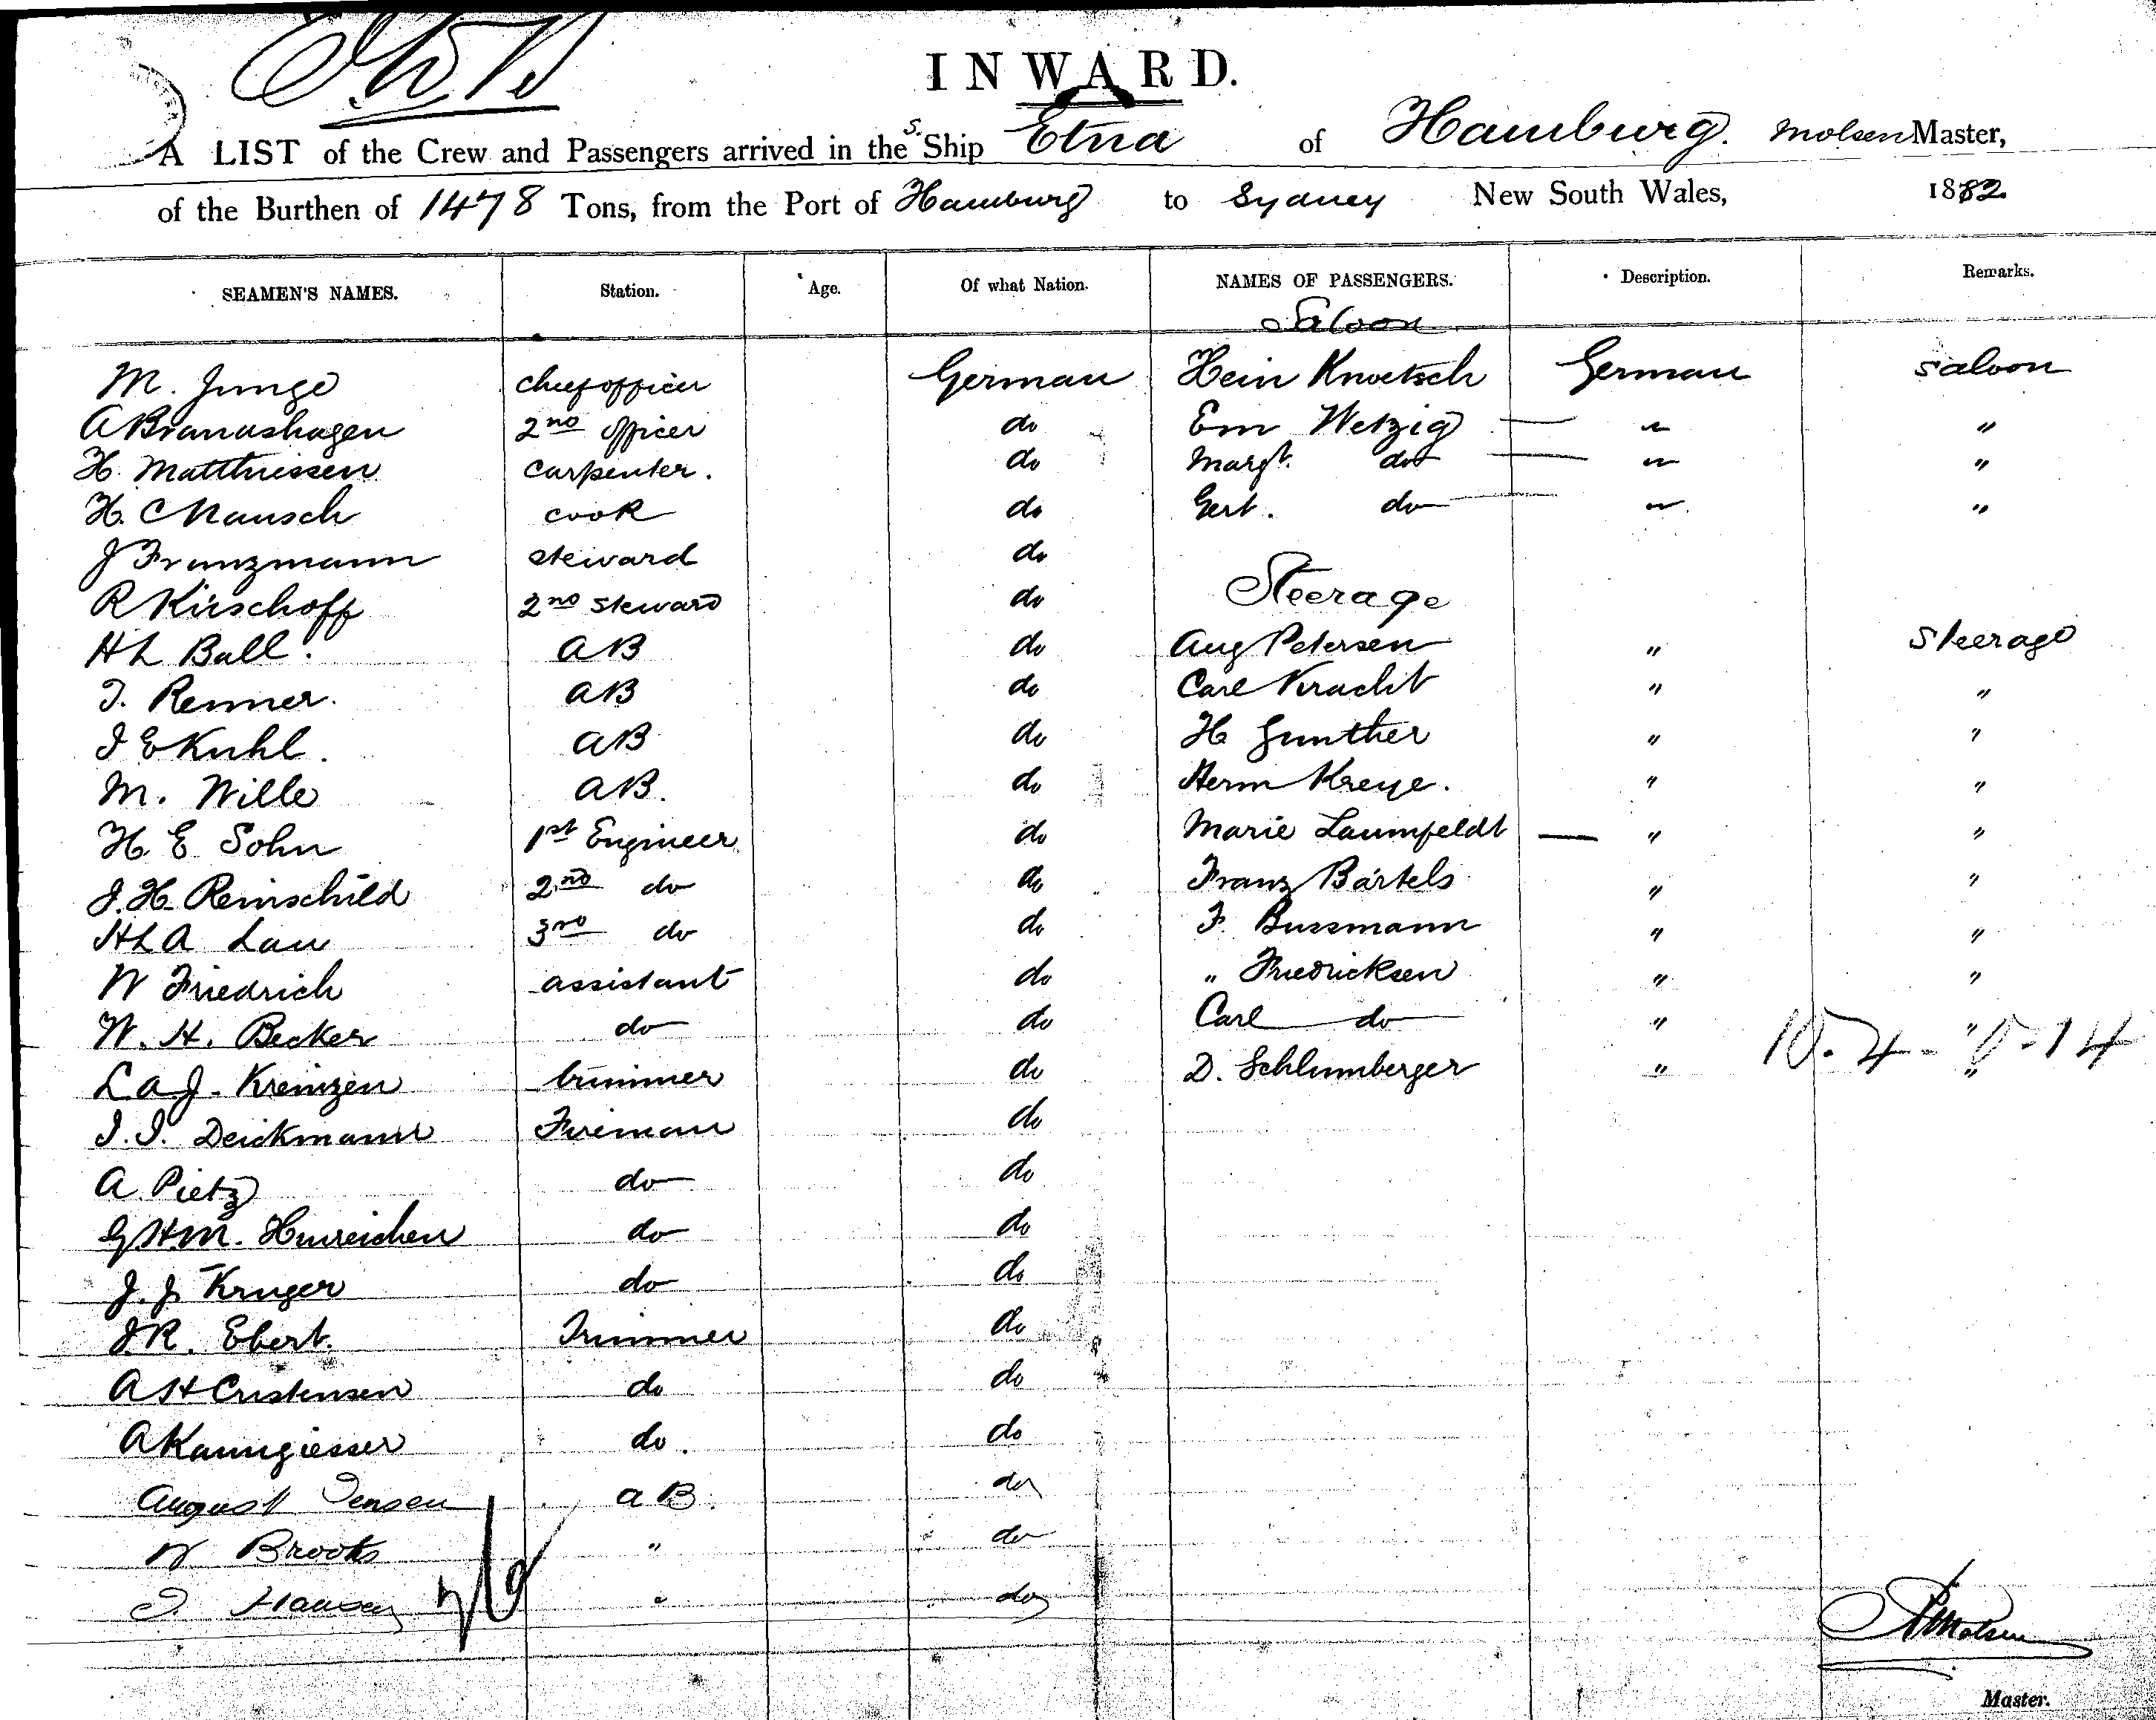 INWARD.
A LIST of the Crew and Passengers arrived in the S. Ship Etna of Hamburg. Molsen Master,
of the Burthen of 1478 Tons, from the Port of Hamburg to Sydney New South Wales, 1882
SEAMEN'S NAMES. Station. Age. Of what Nation. NAMES OF PASSENGERS. Description. Remarks.
Saloon
M. Junge chief officer German Hein Knoetsch German saloon
A Brandshagen 2nd officer do Em Wetzig — " "
H. Matthiessen carpenter. do Margt. do — " "
H. C Mausch cook do Gert. do — " "
J Franzmann steward do
R Kirschoff 2nd steward do Steerage
H L Ball. AB do Aug Petersen " Steerage
J. Renner. AB do Carl Kracht " "
J E Kuhl. AB do H Gunther " "
M. Wille AB. do Herm Kreye. " "
H. E Sohn 1st Engineer do Marie Laumfeldt — " "
J. H. Reinschild 2nd do do Franz Bartels " "
H L A Lau 3rd do do F. Bussmann " "
W Friedrich assistant do " Friedricksen " "
W. H. Becker do do Carl do " "
L a J. Kreinzen trimmer do D. Schlumberger " "
10. 4 - 0 - 14
J. J. Deickmann Fireman do
A. Pietz do do
G H M. Hinreichen do do
J. J. Kruger do do
J. R. Ebert. Trimmer do
A H Cristensen do do
A Kanngiesser do. do
August Jensen a B. do
W Brooks " do
J. Hansen " do
Molsen
Master.